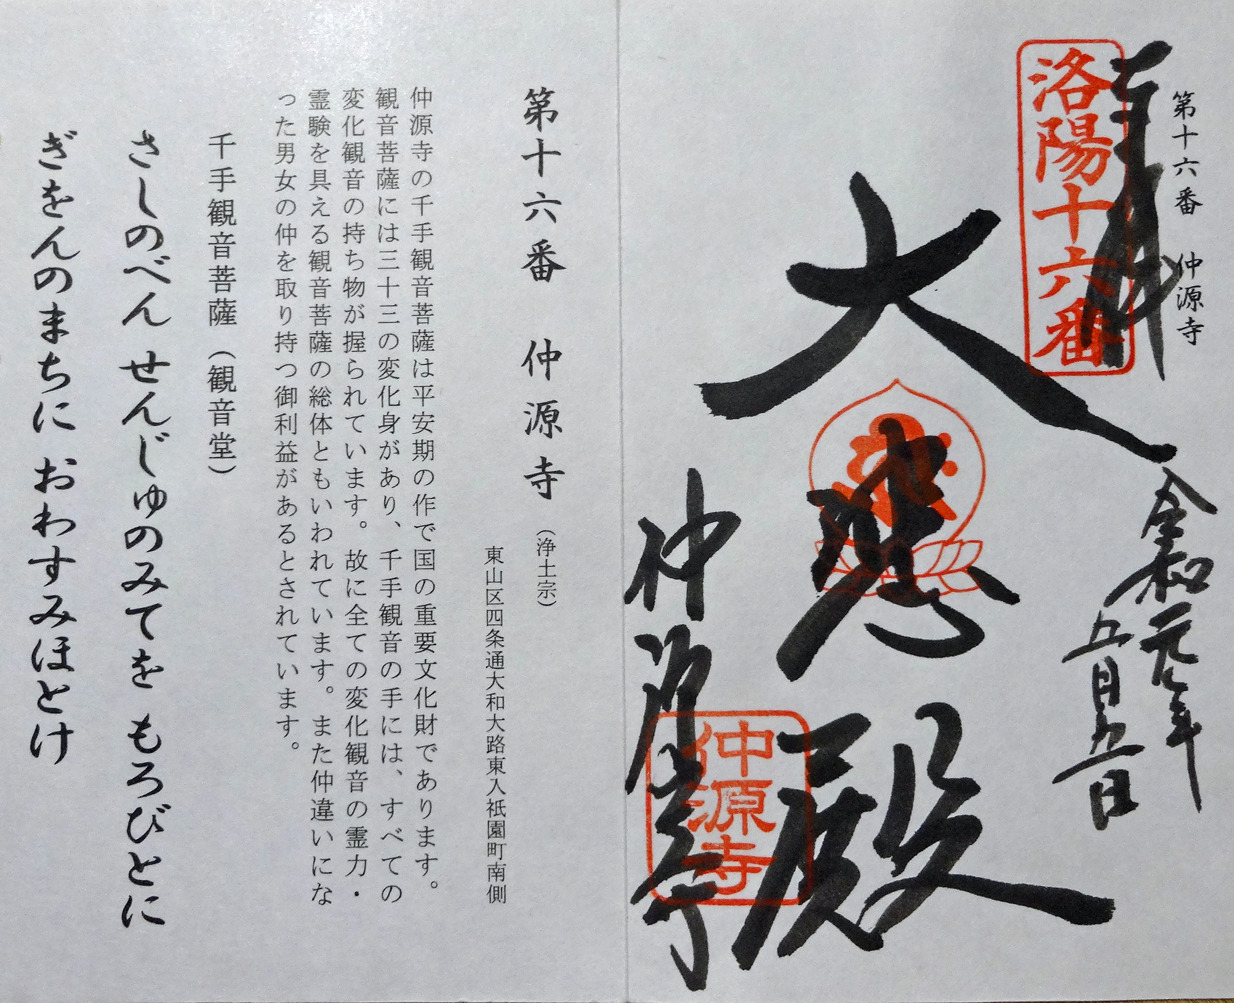 第十六番　仲源寺
奉拝
洛陽十六番
令和元年
五月五日
大悲殿
仲源寺
仲源寺
第十六番　仲源寺（浄土宗）
東山区四条通大和大路東入祇園町南側
仲源寺の千手観音菩薩は平安期の作で国の重要文化財であります。
観音菩薩には三十三の変化身があり、千手観音の手には、すべての
変化観音の持ち物が握られています。故に全ての変化観音の霊力・
霊験を具える観音菩薩の総体ともいわれています。また仲違いにな
った男女の仲を取り持つ御利益があるとされています。
千手観音菩薩（観音堂）
さしのべん せんじゅのみてを もろびとに
ぎをんのまちに おわすみほとけ